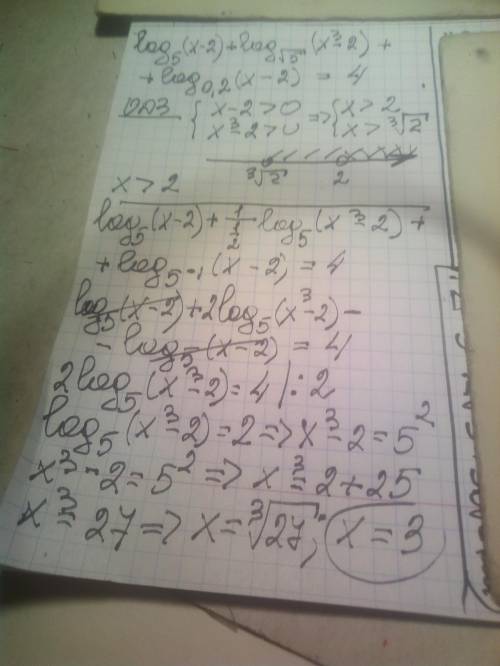 log₅(x-2)+log_√5(x³-2)+
+log₀,₂(x-2) = 4
ОДЗ { x-2>0 => { x>2
x³-2>0 { x>∛2
∛2 2
x>2
log₅(x-2)+1/(1/2) log₅(x³-2)+
+log₅₋₁(x-2)=4
log₅(x-2)+2log₅(x³-2)-
-log₅(x-2) = 4
2log₅(x³-2)=4 |:2
log₅(x³-2)=2=>x³-2=5²
x³-2=5² => x³=2+25
x³=27=> x=∛27; x=3